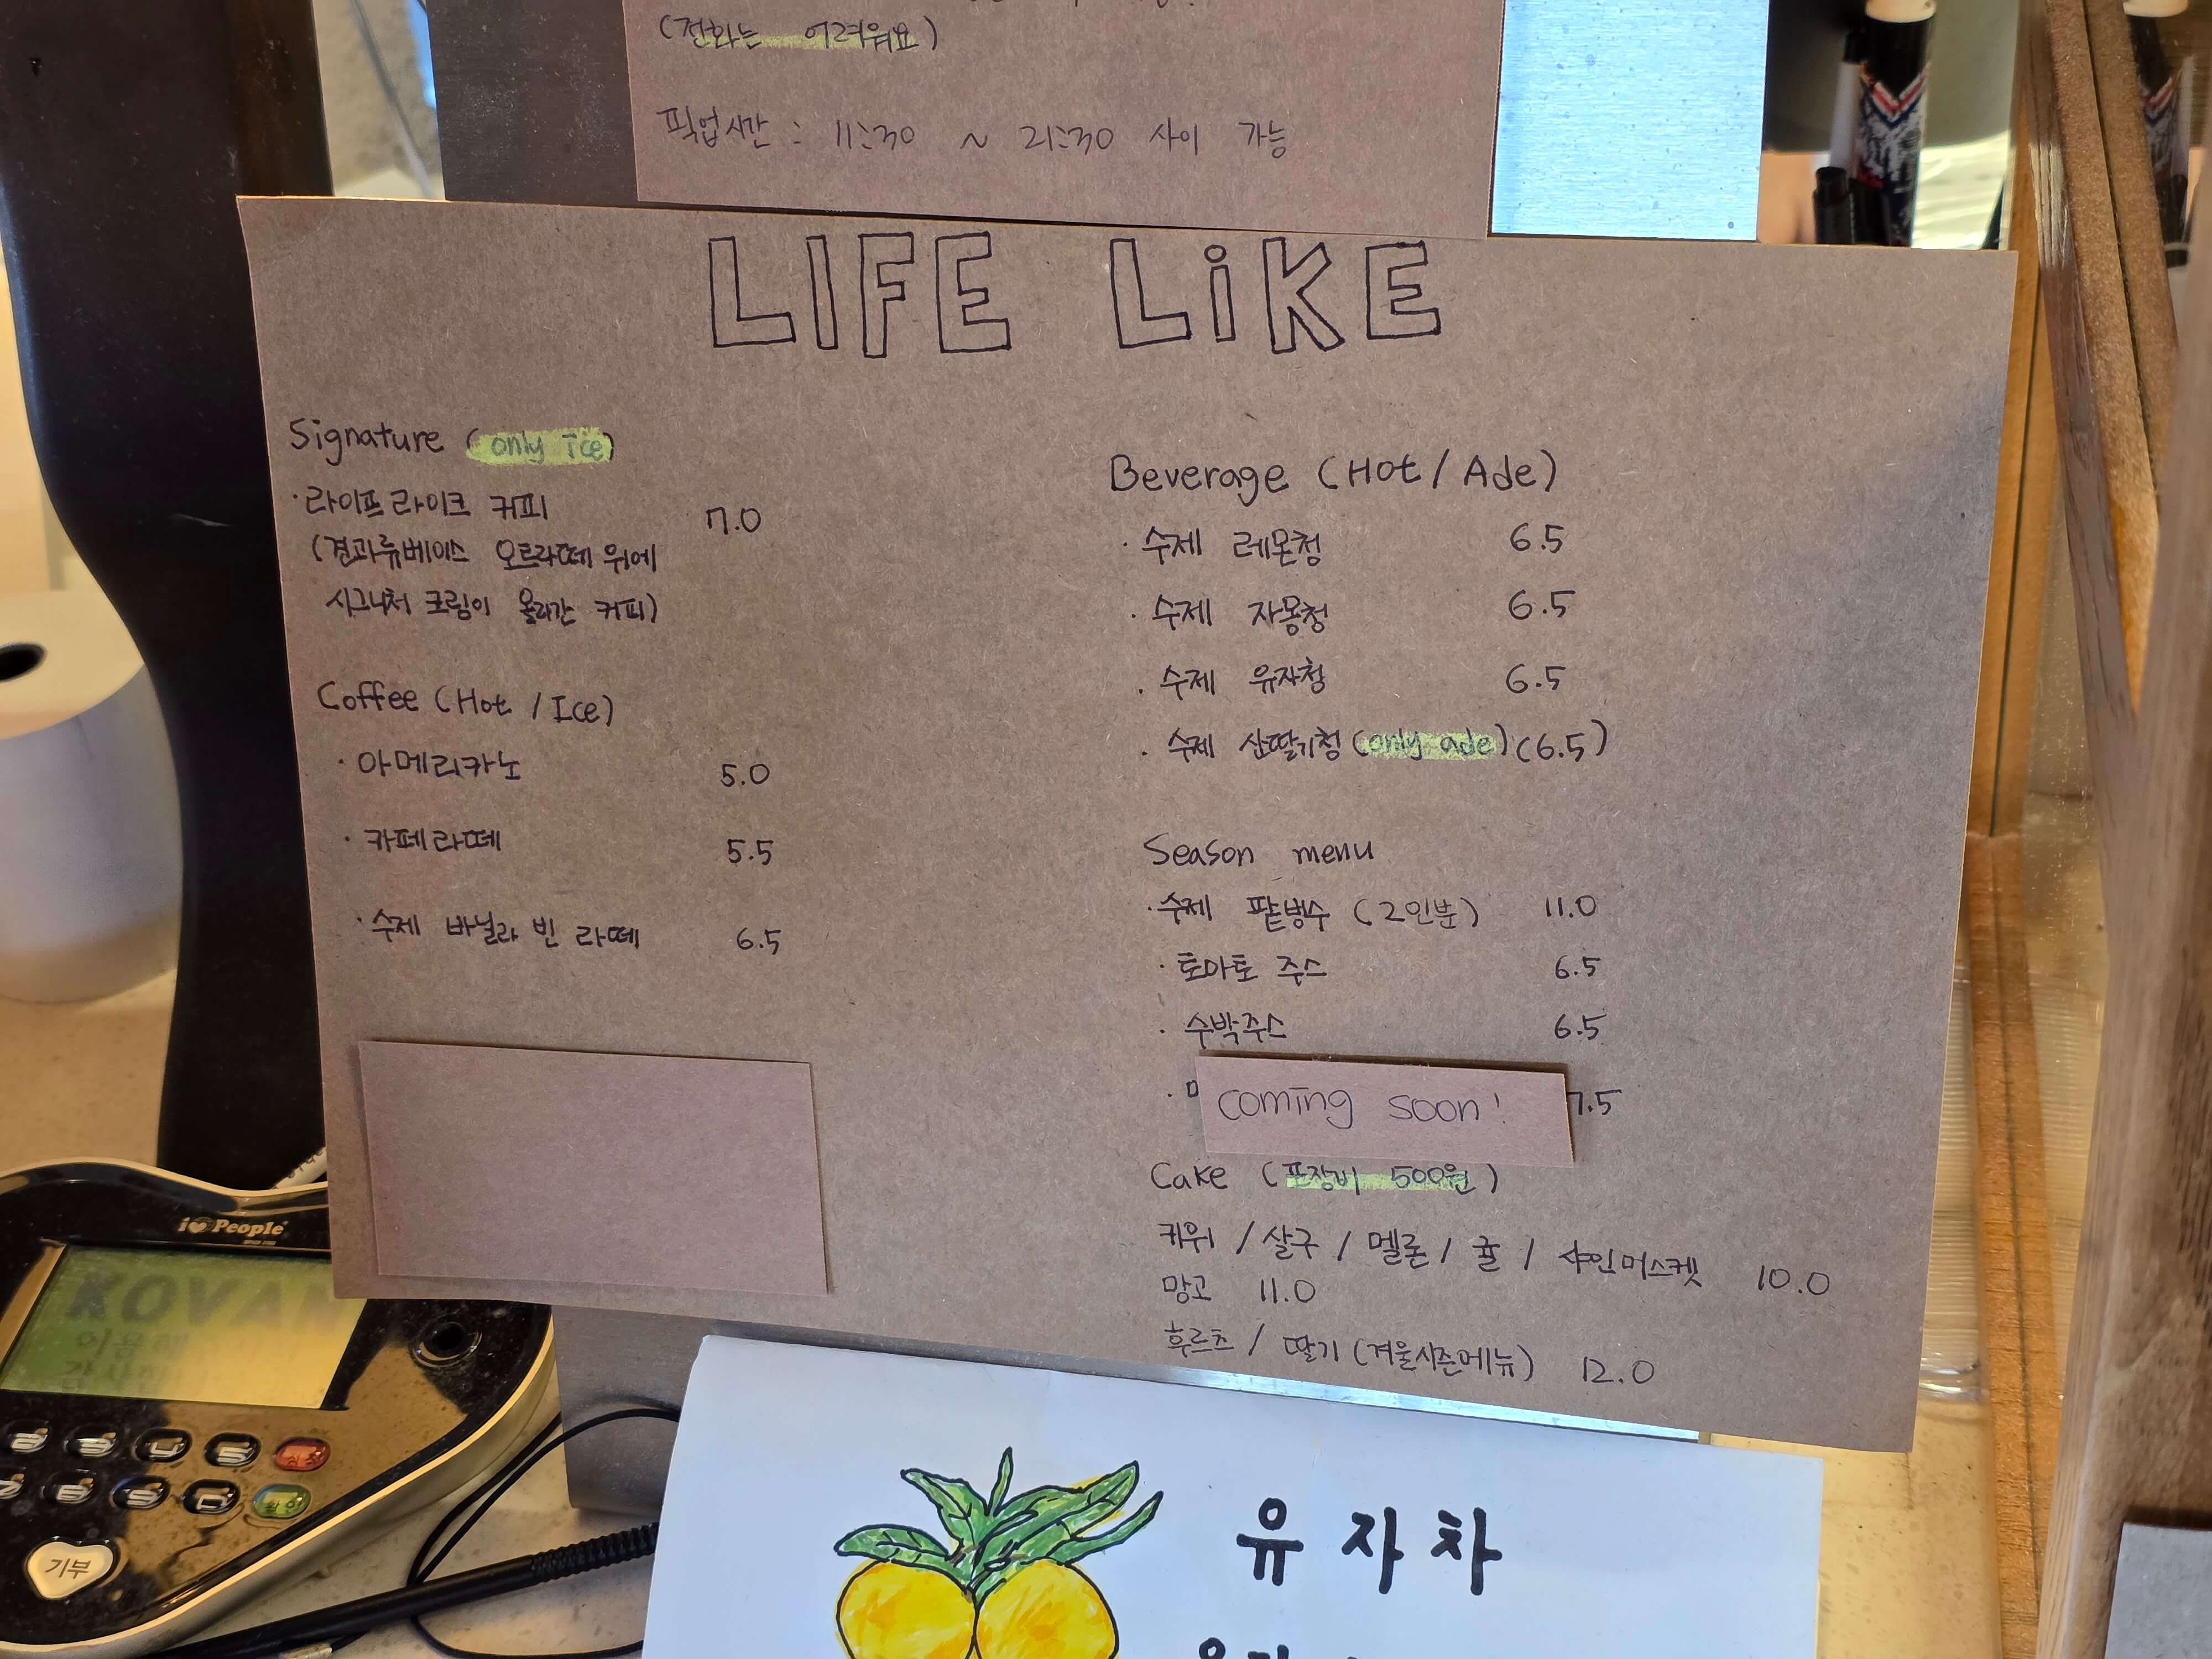 (전화는 어려워요)
픽업시간 : 11:30 ~ 21:30 사이 가능
LIFE LiKE
Signature (only ice)
· 라이프라이크 커피 7.0
(견과류베이스 오트라떼 위에
시그니처 크림이 올라간 커피)
Coffee (Hot / Ice)
· 아메리카노 5.0
· 카페라떼 5.5
· 수제 바닐라 빈 라떼 6.5
Beverage (Hot / Ade)
· 수제 레몬청 6.5
· 수제 자몽청 6.5
· 수제 유자청 6.5
· 수제 산딸기청 (only ade) (6.5)
Season menu
· 수제 팥빙수 (2인분) 11.0
· 토마토 주스 6.5
· 수박주스 6.5
· coming soon! 7.5
Cake (포장비 500원)
키위 / 살구 / 멜론 / 귤 / 샤인머스켓 10.0
망고 11.0
후르츠 / 딸기 (겨울시즌메뉴) 12.0
i People
KOVAN
기부
유자차